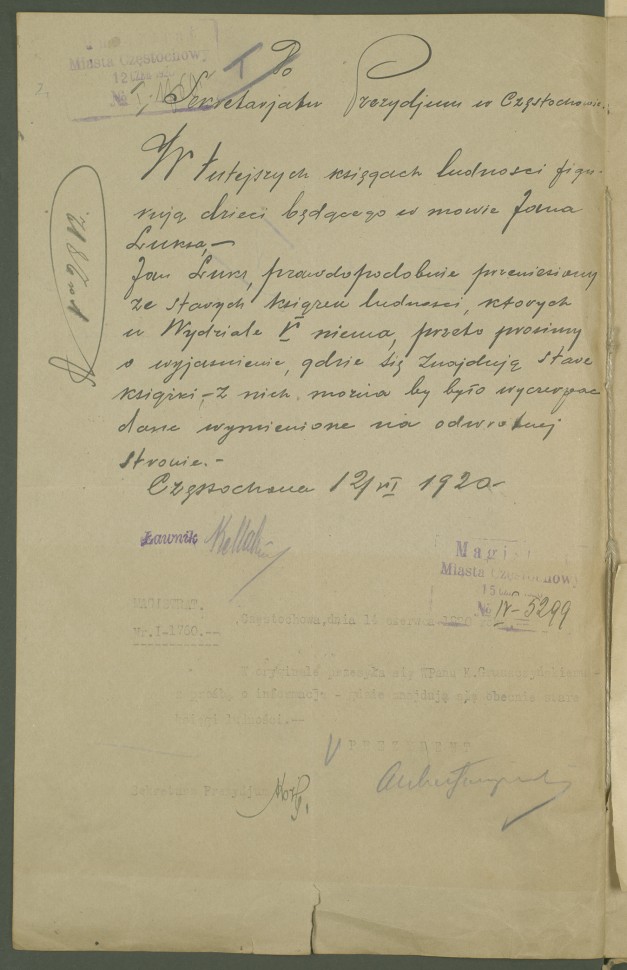 Miasta Częstochowy
12
№ I
I
Do
Sekretarjatu Prezydjum w Częstochowie.
W tutejszych księgach ludności figu-
rują dzieci będącego w mowie Jana
Luksa,-
Jan Luks, prawdopodobnie przeniesiony
ze starych książek ludności, których
w Wydziale V niema, przeto prosimy
o wyjaśnienie, gdzie się znajdują stare
książki,- z nich można by było wyczerpać
dane wymienione na odwrotnej
stronie.-
Częstochowa 12/VI 1920
Ławnik
Magi
Miasta Częstochowy
15
№ IV-5299
MAGISTRAT.
Nr.I-1760.--
Częstochowa, dnia 14 czerwca 1920
W oryginale przesyła się WPanu K.
prośbą o informację - gdzie znajdują się obecnie stare
księgi ludności.--
PREZYDENT
Sekretarz Prezydjum